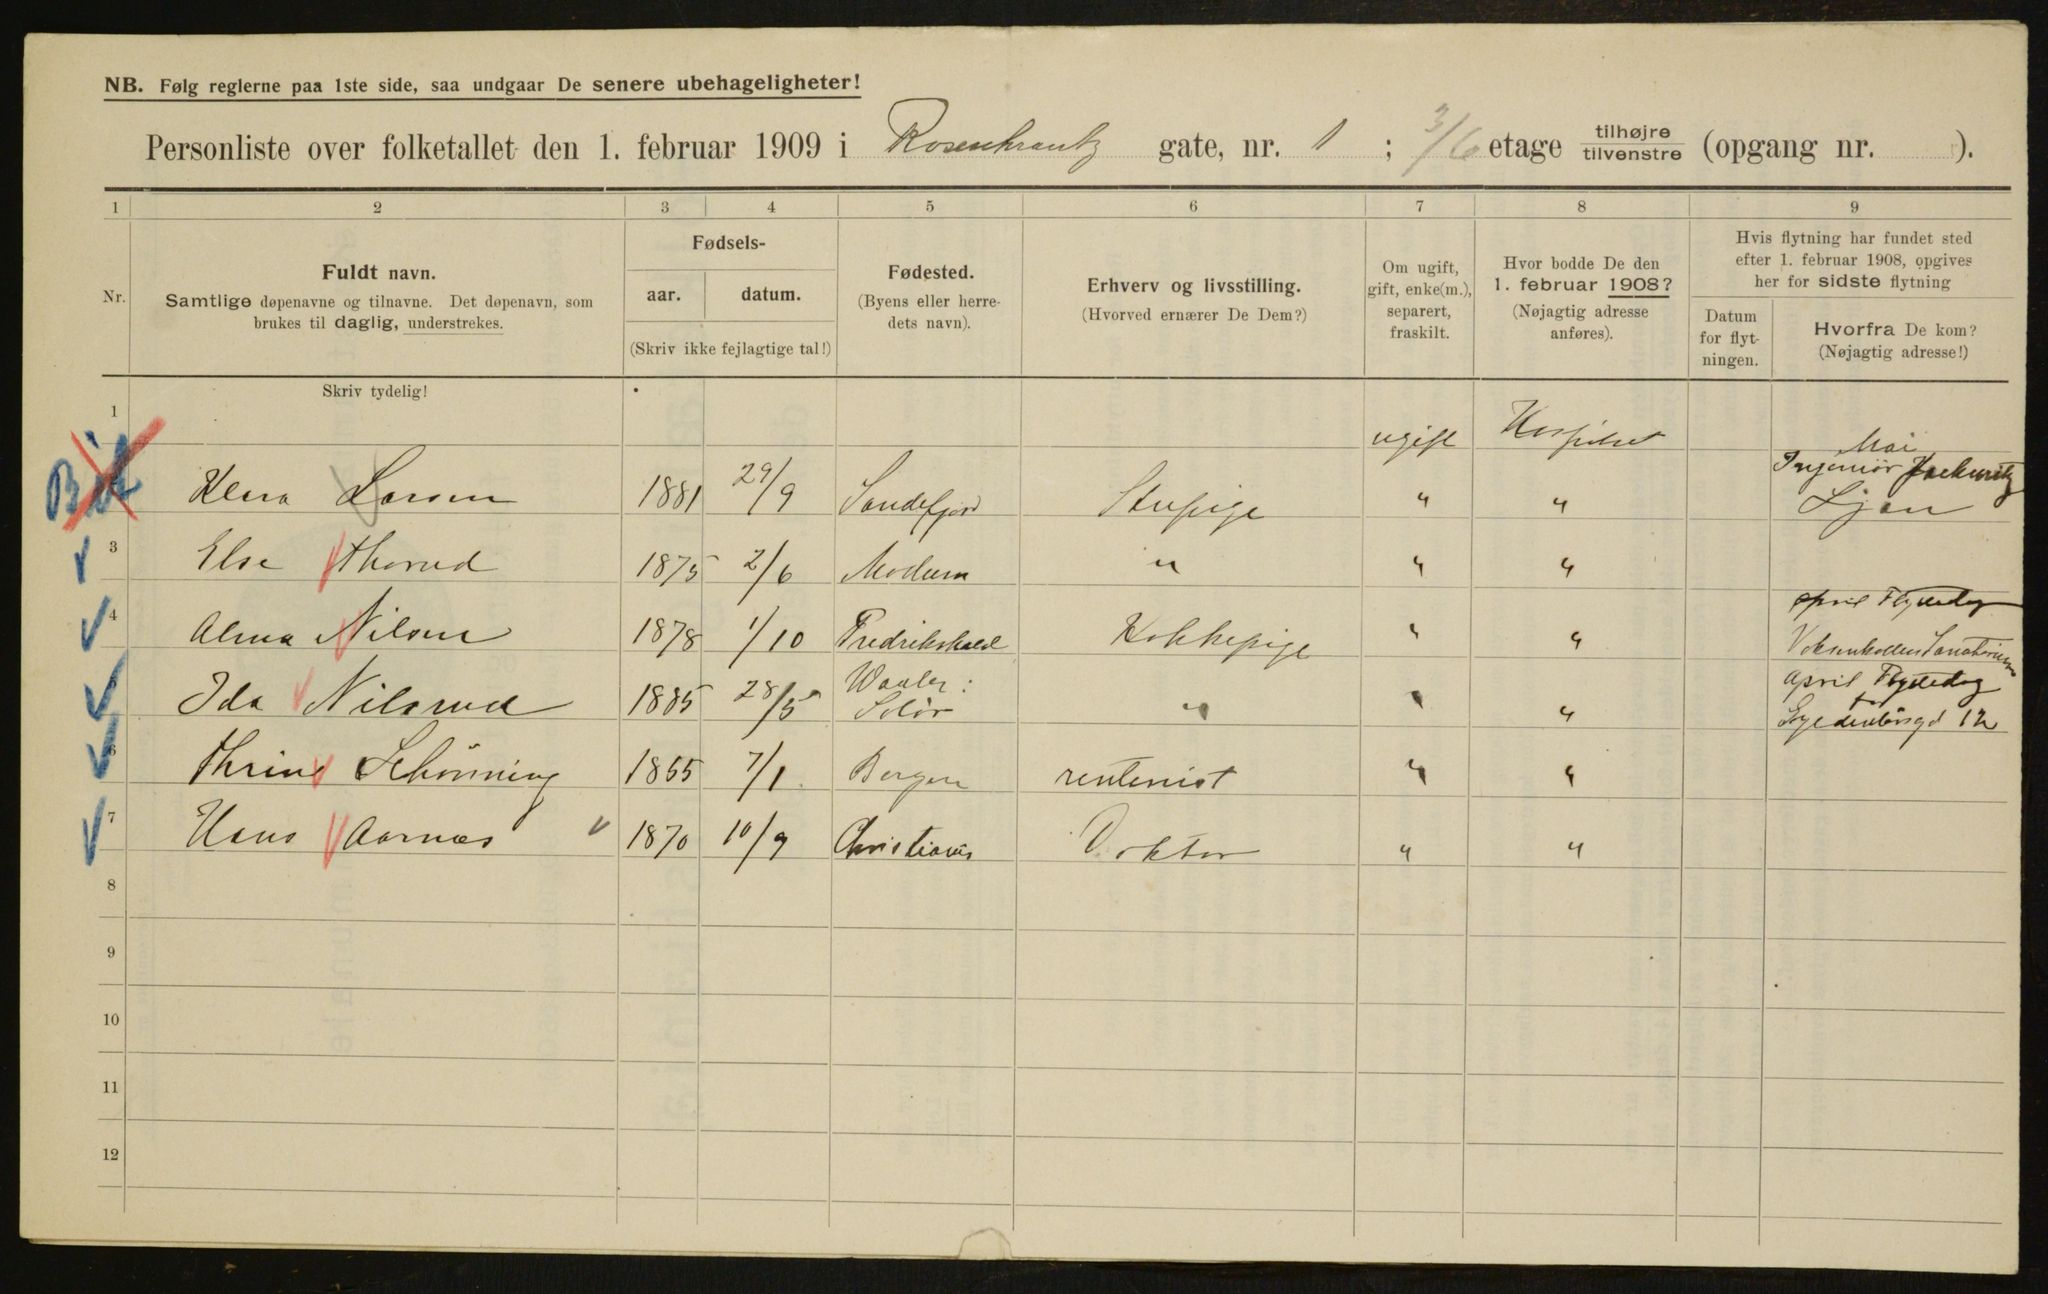 NB. Følg reglerne paa 1ste side, saa undgaar De senere ubehageligheter!
Personliste over folketallet den 1. februar 1909 i Rosenkrantz gate, nr. 1 ; 3/6 etage tilhøjre/tilvenstre (opgang nr. ).
1 2 3 4 5 6 7 8 9
Nr.
Fuldt navn.
Samtlige døpenavne og tilnavne. Det døpenavn, som
brukes til daglig, understrekes.
Fødsels-
aar. datum.
(Skriv ikke fejlagtige tal!)
Fødested.
(Byens eller herre-
dets navn).
Erhverv og livsstilling.
(Hvorved ernærer De Dem?)
Om ugift,
gift, enke(m.),
separert,
fraskilt.
Hvor bodde De den
1. februar 1908?
(Nøjagtig adresse
anføres).
Hvis flytning har fundet sted
efter 1. februar 1908, opgives
her for sidste flytning
Datum
for flyt-
ningen.
Hvorfra De kom?
(Nøjagtig adresse!)
Skriv tydelig!
1 ugift Hospitset
Mai
Ingeniør
Klara Larsen 1881 29/9 Sandefjord Stupige " " Ljan
3 Else Thorud 1875 2/6 Modum " " "
april Flyttedag
4 Alma Nilsen 1878 1/10 Fredrikshald Kokkepige " " Voksenkollen Sanatorium
april Flyttedag
fra
5 Ida Nilsrud 1885 28/5 Waaler: Solør " " " Gyldenløvsgd 12
6 Thrine Schönning 1865 7/1 Bergen rentenist " "
7 Hans Aarnæs 1870 10/9 Christiania Doktor " "
8
9
10
11
12